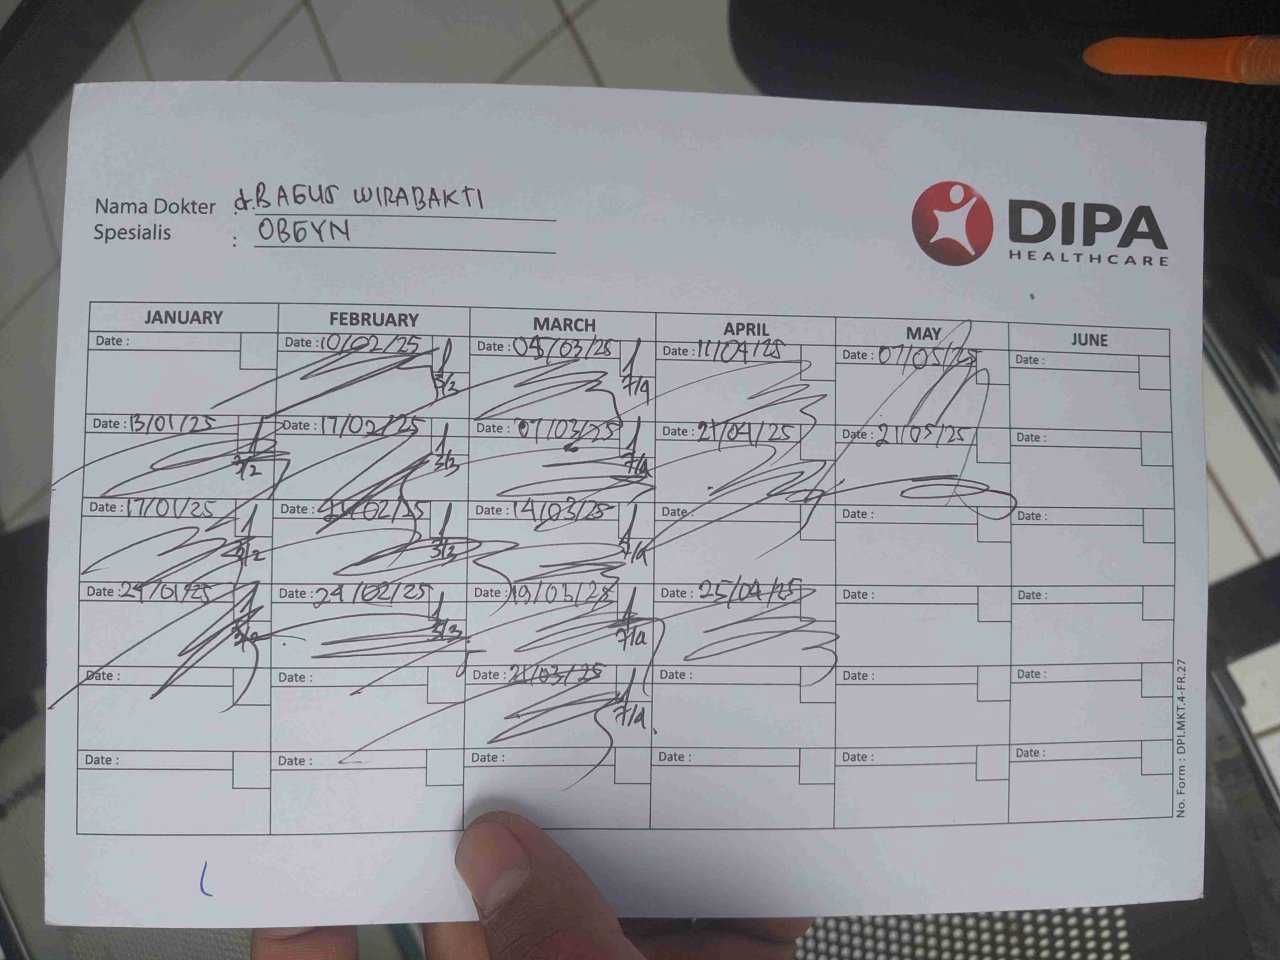 Nama Dokter : d. BAGUS WIRABAKTI
Spesialis : OBGYN
DIPA
HEALTHCARE
JANUARY FEBRUARY MARCH APRIL MAY JUNE
Date : Date : 10/02/25 Date : 05/03/25 Date : 11/04/25 Date : 07/05/25 Date :
3/3 7/4
Date : 13/01/25 Date : 17/02/25 Date : 07/03/25 Date : 21/04/25 Date : 21/05/25 Date :
3/2 3/3 7/4
Date : 17/01/25 Date : 21/02/25 Date : 14/03/25 Date : Date : Date :
3/2 3/3 7/4
Date : 24/01/25 Date : 24/02/25 Date : 19/03/25 Date : 25/04/25 Date : Date :
3/2 3/3 7/4
Date : Date : Date : 21/03/25 Date : Date : Date :
7/4
Date : Date : Date : Date : Date : Date :
No. Form : DPI.MKT.4-FR.27